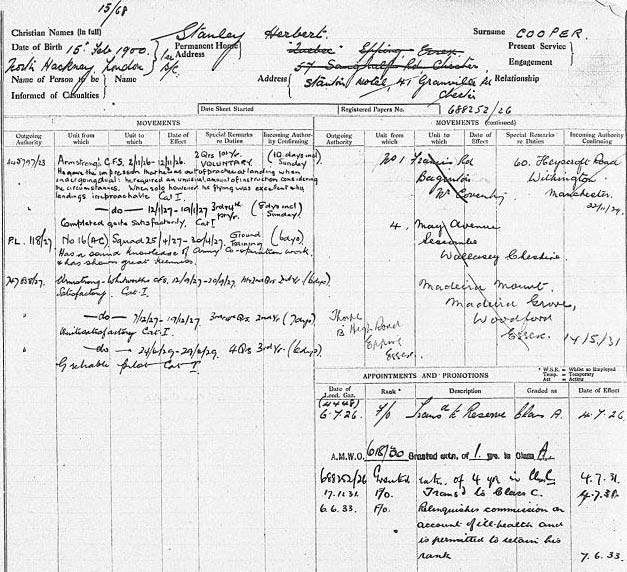 15/68
Christian Names (in full) Stanley Herbert. Surname COOPER.
Date of Birth 15th Feb 1900. Permanent Home Address "Quebec" Epping Essex. Present Service
North Hackney, London Engagement
Name of Person to be Informed of Casualties Name Address 57 Chester.
Stanton Hotel, 41 Granville Rd Relationship
Chester
Date Sheet Started Registered Papers No. 688252/26
MOVEMENTS
Outgoing Authority Unit from which Unit to which Date of Effect Special Remarks re Duties Incoming Authority Confirming
Armstrong's C.F.S. 2/11/26-12/11/26. 2 Qrs 1st Yr. VOLUNTARY (10 days incl Sunday)
He gave the impression that he was out of practice at landing when
undergoing dual: he required an unusual amount of instruction considering
the circumstances. When solo however his flying was excellent & his
landings irreproachable Cat I.
" —do— 12/1/27-19/1/27 3rd & 4th 1st yr. (8 days incl Sunday)
Completed quite satisfactorily. Cat I
P.L. 118/27 No 16 (A-C) Squad 25/4/27-30/4/27. Ground Training (6 days)
Has a sound knowledge of Army Co-operation work
& has shown great keenness.
Armstrong-Whitworths C.F.S. 12/9/27-20/9/27. 2nd Yr (6 days)
Satisfactory. Cat-I.
" —do— 7/12/27-19/12/27 2nd Yr (7 days)
Cat-I.
" —do— 24/6/29-29/6/29. 4 Qrs 3rd Yr. (6 days)
G reliable pilot Cat I
MOVEMENTS (continued)
Outgoing Authority Unit from which Unit to which Date of Effect Special Remarks re Duties Incoming Authority Confirming
No 1 Francis Rd 60. Heycroft Road
Baginton Withington
Nr Coventry Manchester.
22/11/29.
4. May Avenue
Liscombe
Wallasey Cheshire
Madeira Mount.
Madeira Grove,
Woodford
Essex. 14/5/31
Thorpe
High Road
Epping
Essex.
* W.S.E. = Whilst so Employed
Temp. = Temporary
Act = Acting
APPOINTMENTS AND PROMOTIONS
Date of Lond. Gaz. Rank * Description Graded as Date of Effect
(4448)
6.7.26. F/O Trans'd to Reserve Class A. 4.7.26.
A.M.W.O. 618/30 Granted extn. of 1 yrs. in Class A.
688252/26 Granted extn. of 4 yr in 4.7.31.
17.11.31. F/O. Transf'd to Class C. 4.7.31.
6.6.33. F/O. Relinquishes commission on
account of ill-health and
is permitted to retain his
rank 7.6.33.